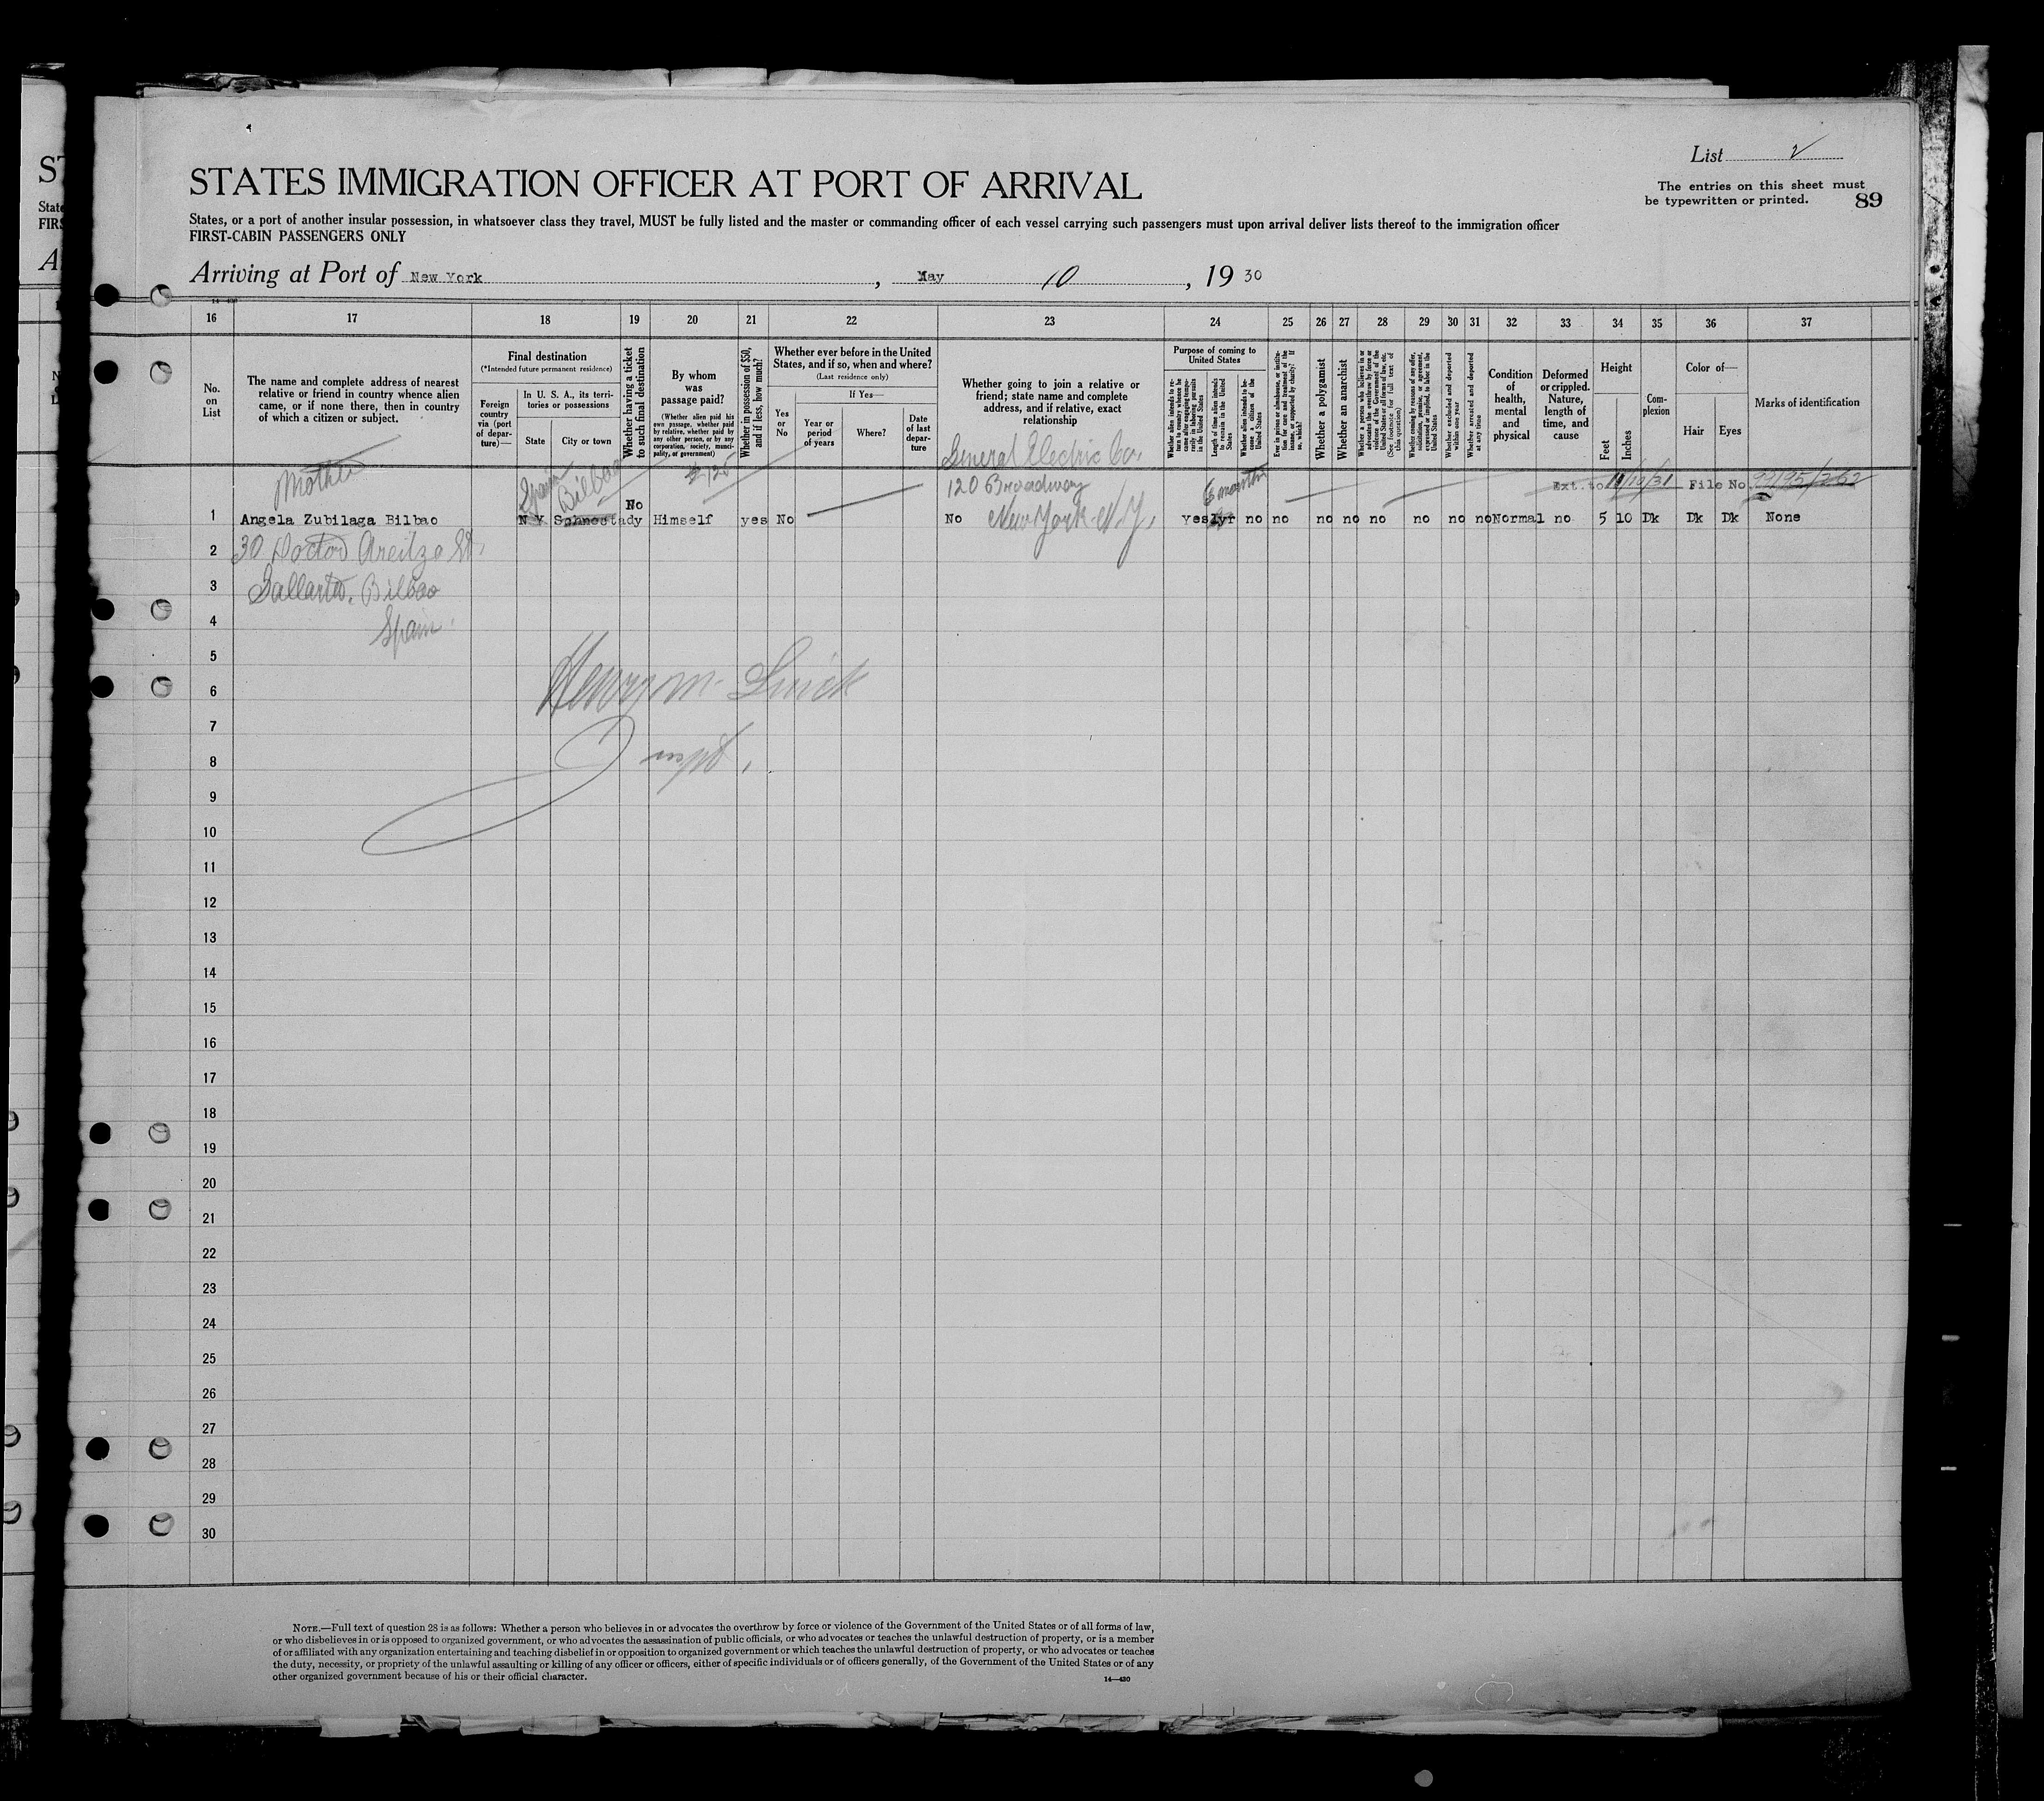 List 2
The entries on this sheet must
be typewritten or printed.
89
STATES IMMIGRATION OFFICER AT PORT OF ARRIVAL
States, or a port of another insular possession, in whatsoever class they travel, MUST be fully listed and the master or commanding officer of each vessel carrying such passengers must upon arrival deliver lists thereof to the immigration officer
FIRST-CABIN PASSENGERS ONLY
Arriving at Port of New York, May 10, 19 30
14-430
16 17 18 19 20 21 22 23 24 25 26 27 28 29 30 31 32 33 34 35 36 37
No. on List
The name and complete address of nearest
relative or friend in country whence alien
came, or if none there, then in country
of which a citizen or subject.
Final destination
(*Intended future permanent residence)
Foreign country via (port of departure)—
In U. S. A., its territories or possessions
State
City or town
Whether having a ticket to such final destination
By whom was passage paid?
(Whether alien paid his own passage, whether paid by relative, whether paid by any other person, or by any corporation, society, municipality, or government)
Whether in possession of $50, and if less, how much?
Whether ever before in the United States, and if so, when and where?
(Last residence only)
Yes or No
If Yes—
Year or period of years
Where?
Date of last departure
Whether going to join a relative or
friend; state name and complete
address, and if relative, exact
relationship
Purpose of coming to United States
Whether alien intends to return to country whence he came after engaging temporarily in laboring pursuits in the United States
Length of time alien intends to remain in the United States
Whether alien intends to become a citizen of the United States
Ever in prison or almshouse, or institution for care and treatment of the insane, or supported by charity? If so, which?
Whether a polygamist
Whether an anarchist
Whether a person who believes in or advocates the overthrow by force or violence of the Government of the United States or all forms of law, etc. (See footnote for full text of this question)
Whether coming by reasons of any offer, solicitation, promise, or agreement, expressed or implied, to labor in the United States
Whether excluded and deported within one year
Whether arrested and deported at any time
Condition of health, mental and physical
Deformed or crippled. Nature, length of time, and cause
Height
Feet
Inches
Complexion
Color of—
Hair
Eyes
Marks of identification
Mother
Spain
Bilbao
$125
General Electric Co.
120 Broadway
New York N.Y.
6 months
Ext. to 11/10/31 File No
1 Angela Zubilaga Bilbao N Y Schnectady No Himself yes No No Yes 1yr no no no no no no no no Normal no 5 10 Dk Dk Dk None
2 30 Doctor Areilza St.
3 Gallarta. Bilbao
4 Spain.
5
6
7
8
9
10
11
12
13
14
15
16
17
18
19
20
21
22
23
24
25
26
27
28
29
30
Henry M.
Inspt.
NOTE.—Full text of question 28 is as follows: Whether a person who believes in or advocates the overthrow by force or violence of the Government of the United States or of all forms of law,
or who disbelieves in or is opposed to organized government, or who advocates the assassination of public officials, or who advocates or teaches the unlawful destruction of property, or is a member
of or affiliated with any organization entertaining and teaching disbelief in or opposition to organized government or which teaches the unlawful destruction of property, or who advocates or teaches
the duty, necessity, or propriety of the unlawful assaulting or killing of any officer or officers, either of specific individuals or of officers generally, of the Government of the United States or of any
other organized government because of his or their official character.
14—430